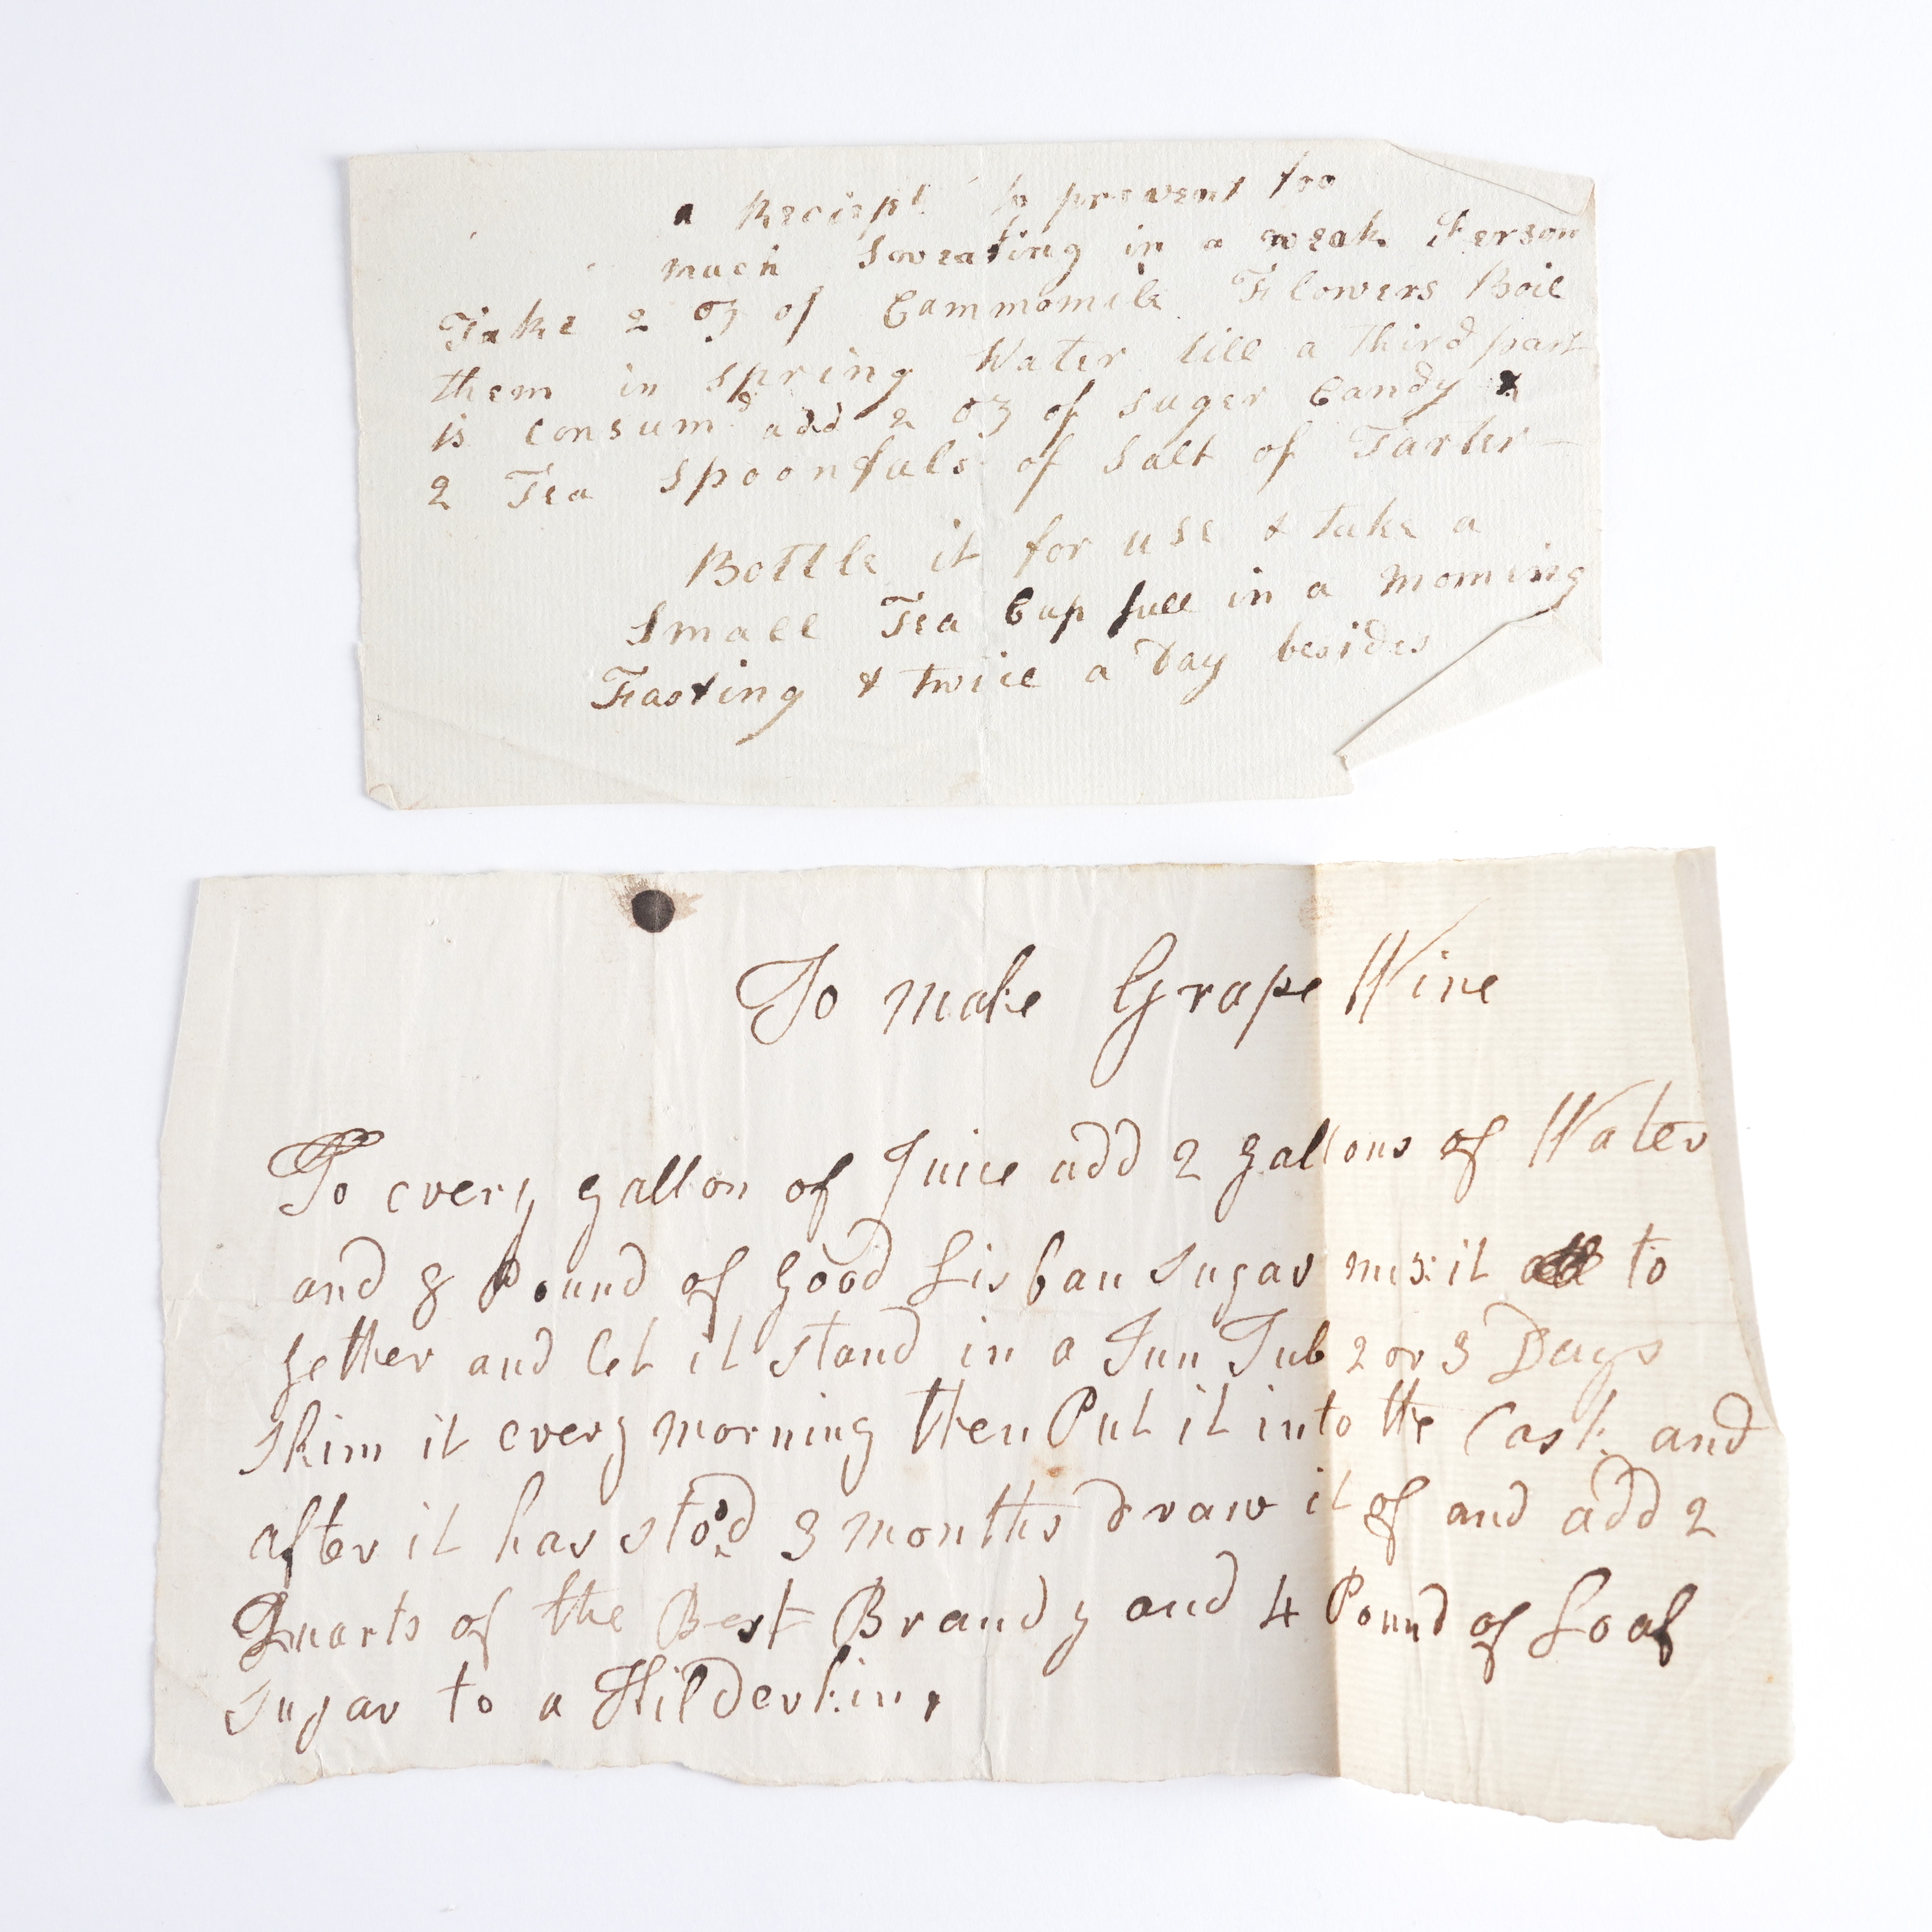 a Reciept to prevent too
much Sweating in a weak Person
Take 2 oz of Cammomile Flowers Boil
them in spring Water till a third part
is consum'd add 2 oz of suger Candy &
2 Tea Spoonfuls of Salt of Tarter —
Bottle it for use & take a
Small Tea Cup full in a Morning
Fasting & twice a Day besides
To make Grape Wine
To every gallon of Juice add 2 gallons of Water
and 8 Pound of good Lisban Sugar mix it to
gether and let it stand in a Tun Tub 2 or 3 Days
Skim it every morning then Put it into the Cask and
after it has stood 3 months draw it of and add 2
Quarts of the Best Brandy and 4 Pound of Loaf
Sugar to a Kilderkin,